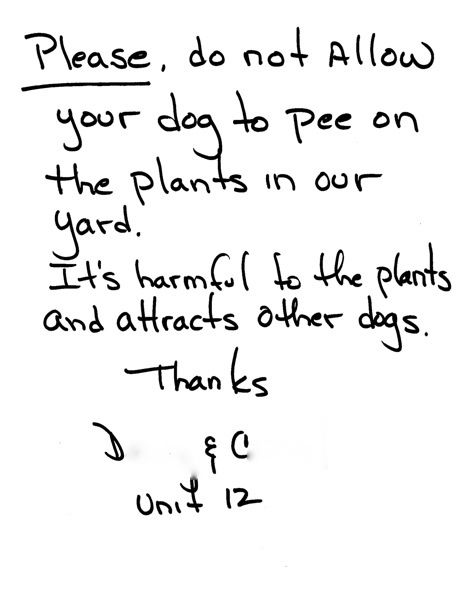 Please, do not Allow
your dog to pee on
the plants in our
yard.
It's harmful to the plants
and attracts other dogs.
Thanks
D & C
Unit 12